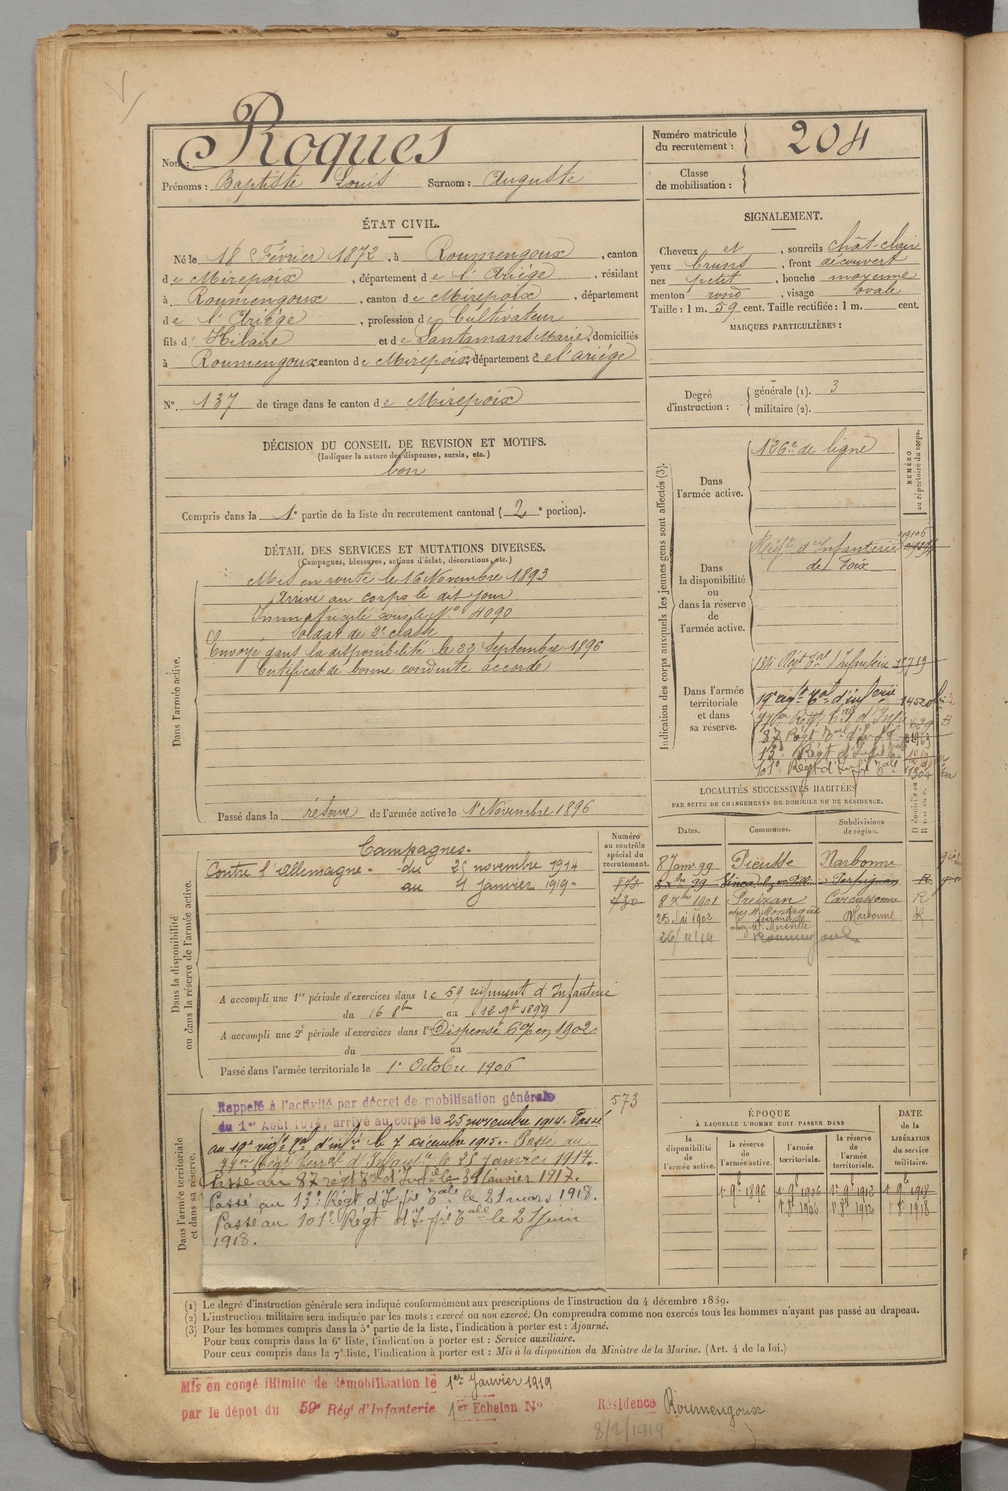 Nom : Roques
Prénoms : Baptiste Louis Surnom : Auguste
Numéro matricule du recrutement : 204
Classe de mobilisation :
ÉTAT CIVIL.
Né le 18 Février 1872, à Roumengoux, canton
de Mirepoix, département de l'Ariége, résidant
à Roumengoux, canton de Mirepoix, département
de l'Ariége, profession de Cultivateur
fils d'Hilaire et de Santamans Marie, domiciliés
à Roumengoux canton de Mirepoix, département de l'ariége
N° 137 de tirage dans le canton de Mirepoix
SIGNALEMENT.
Cheveux et, sourcils chât-clair
yeux bruns, front découvert
nez petit, bouche moyenne
menton rond, visage ovale
Taille : 1 m. 59 cent. Taille rectifiée : 1 m. cent.
MARQUES PARTICULIÈRES :
Degré d'instruction : générale (1). 3
militaire (2).
DÉCISION DU CONSEIL DE REVISION ET MOTIFS.
(Indiquer la nature des dispenses, sursis, etc.)
bon
Compris dans la 1e partie de la liste du recrutement cantonal (2e portion).
DÉTAIL DES SERVICES ET MUTATIONS DIVERSES.
(Campagnes, blessures, actions d'éclat, décorations, etc.)
Dans l'armée active.
Mis en route le 16 Novembre 1893
Arrivé au corps le dit jour
Immatriculé sous le N° 4090
Soldat de 2e classe
Envoyé dans la disponibilité le 23 Septembre 1896
Certificat de bonne conduite accordé
Passé dans la réserve de l'armée active le 1er Novembre 1896
Indication des corps auxquels les jeunes gens sont affectés (3).
NUMÉRO au répertoire du corps.
Dans l'armée active.
126e de ligne
Dans la disponibilité ou dans la réserve de l'armée active.
Régt d'Infanterie
de Foix
Dans l'armée territoriale et dans sa réserve.
19e régt tal d'infterie
87 Régt
13e Régt d'Infrie
101e Régt d'Infrie tale
LOCALITÉS SUCCESSIVES HABITÉES
PAR SUITE DE CHANGEMENTS DE DOMICILE OU DE RÉSIDENCE.
Dates. Communes. Subdivisions de région.
8 Janv 99 Pieusse Narbonne
8 Xbre 1901 Preixan Carcassonne R
25 1902 Narbonne R
26/11/14 Roumengoux
Dans la disponibilité ou dans la réserve de l'armée active.
Numéro au contrôle spécial du recrutement.
Campagnes.
Contre l'Allemagne - du 25 novembre 1914
au 1 Janvier 1919 -
A accompli une 1re période d'exercices dans le 59 régiment d'Infanterie
du 16 8bre au 12 9b 1899
A accompli une 2e période d'exercices dans l Dispensé 1902
du au
Passé dans l'armée territoriale le 1er Octobre 1906
Dans l'armée territoriale et dans sa réserve.
573
Rappelé à l'activité par décret de mobilisation générale
du 1er Août 1914, arrivé au corps le 25 novembre 1914. Passé
au 19e régt tal d'infie le 7 décembre 1915. - Passé au
Régt Territ d'Infant le 25 janvier 1917.
Passé au 87 régt tal d'Inf le 31 janvier 1917.
Passé au 13e Régt d'Infrie tale le 21 mars 1918.
Passé au 101e Régt d'Infrie tale le 21 Juin
1918.
ÉPOQUE
À LAQUELLE L'HOMME DOIT PASSER DANS
DATE de la LIBÉRATION du service militaire.
la disponibilité de l'armée active. la réserve de l'armée active. l'armée territoriale. la réserve de l'armée territoriale.
1er 9b 1896 1er 9b 1906 1er 9b 1912 1er 9b 1918
1er 8b 1906 1er 8b 1912 1er 8b 1918
(1) Le degré d'instruction générale sera indiqué conformément aux prescriptions de l'instruction du 4 décembre 1889.
(2) L'instruction militaire sera indiquée par les mots : exercé ou non exercé. On comprendra comme non exercés tous les hommes n'ayant pas passé au drapeau.
(3) Pour les hommes compris dans la 5e partie de la liste, l'indication à porter est : Ajourné.
Pour ceux compris dans la 6e liste, l'indication à porter est : Service auxiliaire.
Pour ceux compris dans la 7e liste, l'indication à porter est : Mis à la disposition du Ministre de la Marine. (Art. 4 de la loi.)
Mis en congé illimité de démobilisation le 1er Janvier 1919
par le dépot du 59e Régt d'Infanterie 1er Echelon N° Résidence Roumengoux
8/2/1919